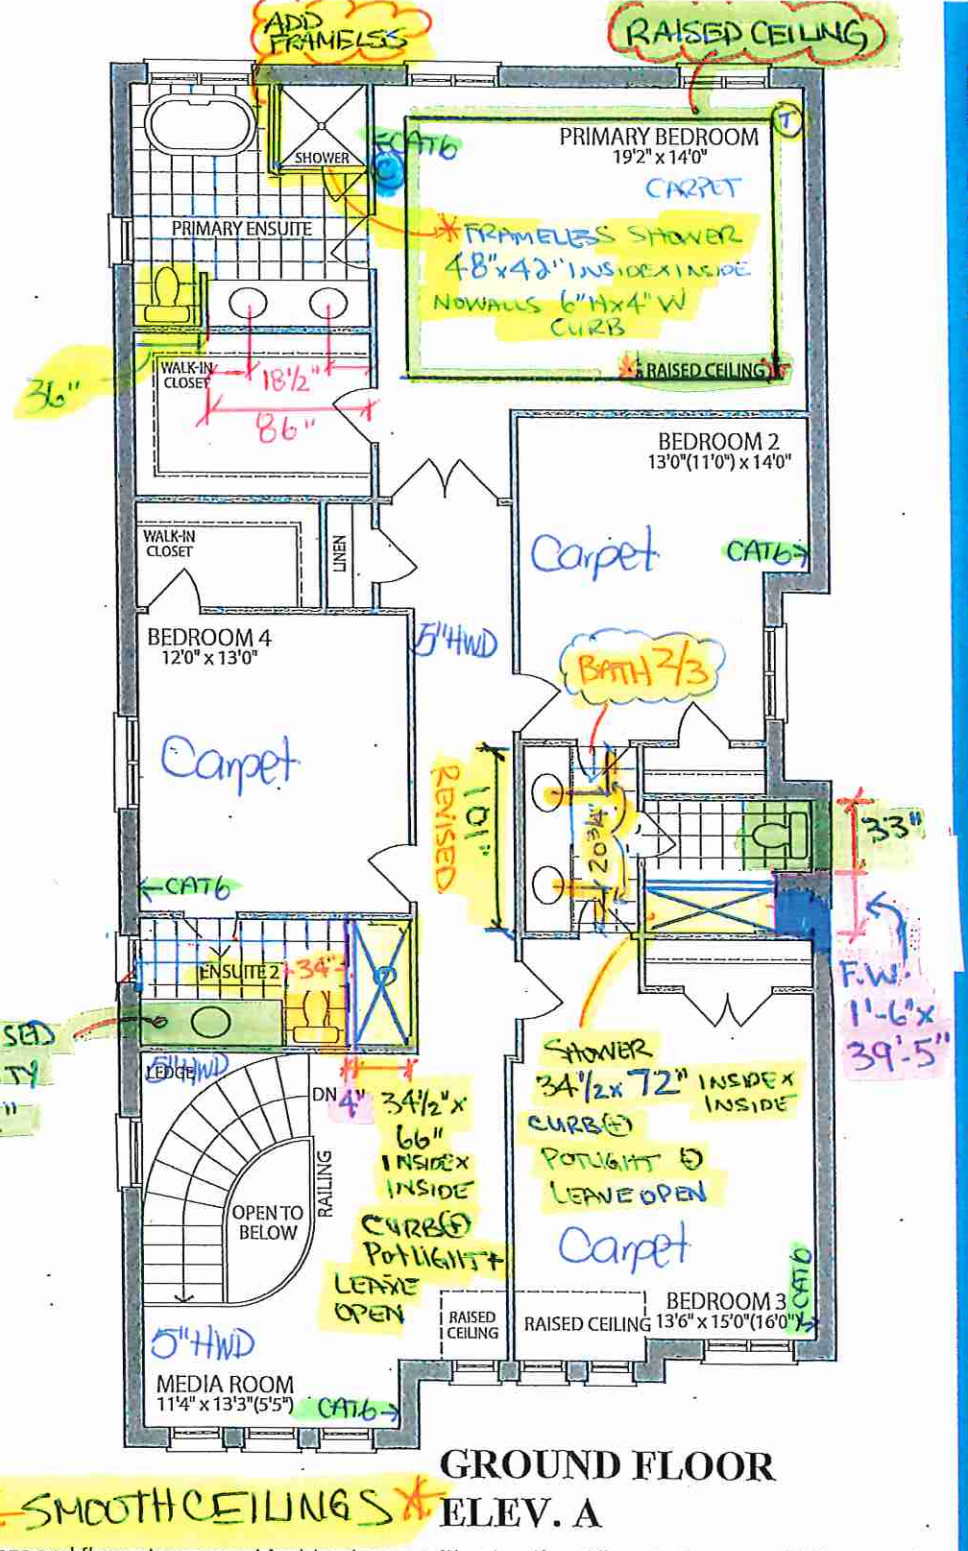 ADD
FRAMELSS
RAISED CEILING
SHOWER
CAT6
T
PRIMARY BEDROOM
19'2" x 14'0"
CARPET
PRIMARY ENSUITE
* FRAMELESS SHOWER
48"x42" INSIDEXINSIDE
NOWALLS 6"Hx4"W
CURB
RAISED CEILING
36"
WALK-IN
CLOSET
18½"
86"
BEDROOM 2
13'0"(11'0") x 14'0"
WALK-IN
CLOSET
LINEN
Carpet
CAT6→
BEDROOM 4
12'0" x 13'0"
5"HWD
BATH 2/3
Carpet
REVISED
101"
20¾"
33"
←CAT6
ENSUITE 2
34"
F.W.
1'-6"x
39'-5"
SED
TY
"
LEDGE
5"HWD
DN
4"
34½"x
66"
INSIDEX
INSIDE
CURB(+)
POTLIGHT+
LEAVE
OPEN
SHOWER
34½x 72" INSIDEX
INSIDE
CURB(+)
POTLIGHT
LEAVE OPEN
RAILING
OPEN TO
BELOW
Carpet
CAT6
RAISED
CEILING
RAISED CEILING
BEDROOM 3
13'6" x 15'0"(16'0")
5"HWD
MEDIA ROOM
11'4" x 13'3"(5'5")
CAT6→
GROUND FLOOR
ELEV. A
SMOOTH CEILINGS *